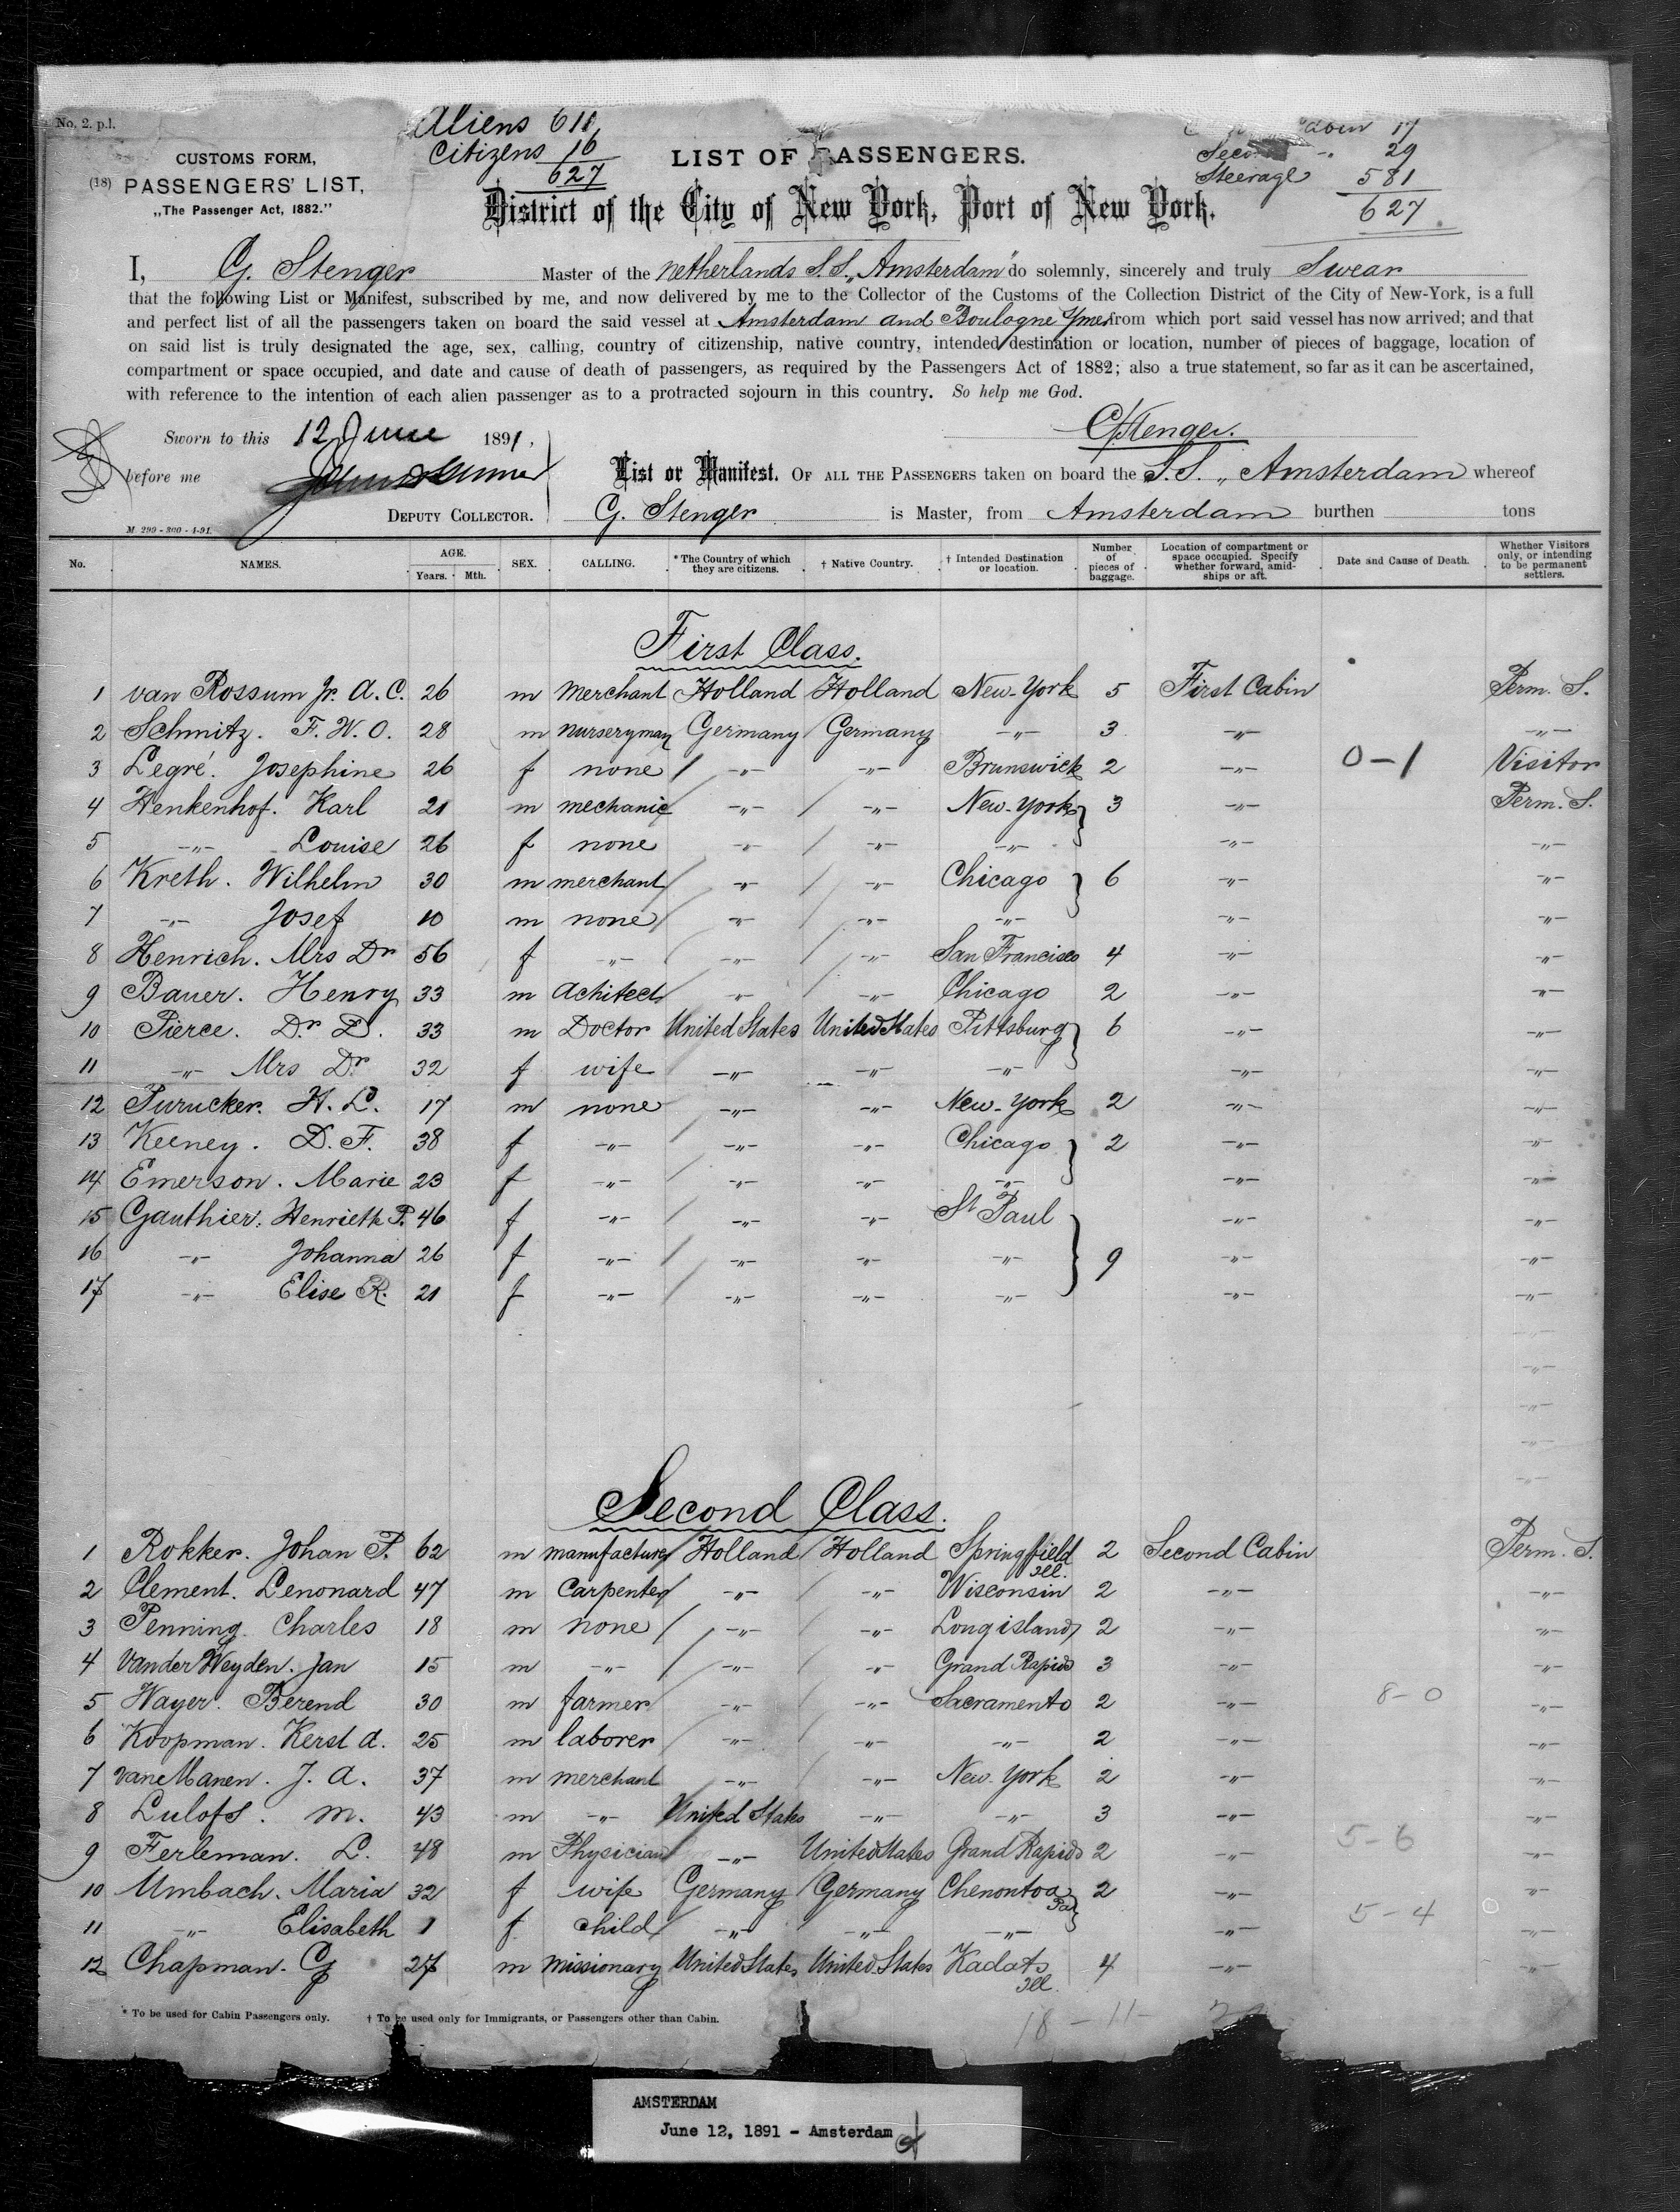 No. 2. p.l.
Aliens 611
Citizens 16
627
Cabin 17
Seco -„- 29
Steerage 581
627
CUSTOMS FORM,
(18) PASSENGERS' LIST,
„The Passenger Act, 1882."
LIST OF PASSENGERS.
District of the City of New York, Port of New York.
I, G. Stenger Master of the Netherlands S.S. „Amsterdam" do solemnly, sincerely and truly Swear
that the following List or Manifest, subscribed by me, and now delivered by me to the Collector of the Customs of the Collection District of the City of New-York, is a full
and perfect list of all the passengers taken on board the said vessel at Amsterdam and Boulogne s/mer from which port said vessel has now arrived; and that
on said list is truly designated the age, sex, calling, country of citizenship, native country, intended destination or location, number of pieces of baggage, location of
compartment or space occupied, and date and cause of death of passengers, as required by the Passengers Act of 1882; also a true statement, so far as it can be ascertained,
with reference to the intention of each alien passenger as to a protracted sojourn in this country. So help me God.
G. Stenger.
Sworn to this 12 June 1891,
before me
List or Manifest. OF ALL THE PASSENGERS taken on board the S.S. „Amsterdam whereof
DEPUTY COLLECTOR. G. Stenger is Master, from Amsterdam burthen tons
M. 299 - 300 - 4-91.
No. NAMES. AGE. Years. Mth. SEX. CALLING. * The Country of which they are citizens. † Native Country. † Intended Destination or location. Number of pieces of baggage. Location of compartment or space occupied. Specify whether forward, amidships or aft. Date and Cause of Death. Whether Visitors only, or intending to be permanent settlers.
First Class.
1 van Rossum Jr. A. C. 26 m merchant Holland Holland New-York 5 First Cabin Perm. S.
2 Schmitz. F. W. O. 28 m nurseryman Germany Germany -„- 3 -„- -„-
3 Legré. Josephine 26 f none -„- -„- Brunswick 2 -„- 0-1 Visitor
4 Henkenhof. Karl 21 m mechanic -„- -„- New-York 3 -„- Perm. S.
5 -„- Louise 26 f none -„- -„- -„- -„- -„-
6 Kreth. Wilhelm 30 m merchant -„- -„- Chicago 6 -„- -„-
7 -„- Josef 10 m none -„- -„- -„- -„- -„-
8 Henrich. Mrs Dr 56 f -„- -„- -„- San Francisco 4 -„- -„-
9 Bauer. Henry 33 m Achitect -„- -„- Chicago 2 -„- -„-
10 Pierce. Dr. D. 33 m Doctor United States United States Pittsburg 6 -„- -„-
11 -„- Mrs Dr 32 f wife -„- -„- -„- -„- -„-
12 Purucker. H. L. 17 m none -„- -„- New-York 2 -„- -„-
13 Keeney. D. F. 38 f -„- -„- -„- Chicago 2 -„- -„-
14 Emerson. Marie 23 f -„- -„- -„- -„- -„- -„-
15 Gauthier. Henriette P. 46 f -„- -„- -„- St Paul -„- -„-
16 -„- Johanna 26 f -„- -„- -„- -„- 9 -„- -„-
17 -„- Elise R. 21 f -„- -„- -„- -„- -„- -„-
-„-
-„-
-„-
-„-
-„-
Second Class.
1 Rokker. Johan P. 62 m manufacturer Holland Holland Springfield Ill. 2 Second Cabin Perm. S.
2 Clement. Lenonard 47 m Carpenter -„- -„- Wisconsin 2 -„- -„-
3 Penning. Charles 18 m none -„- -„- Longisland 2 -„- -„-
4 Vander Weyden. Jan 15 m -„- -„- -„- Grand Rapids 3 -„- -„-
5 Wayer. Berend 30 m farmer -„- -„- Sacramento 2 -„- 8-0 -„-
6 Koopman. Kerst A. 25 m laborer -„- -„- -„- 2 -„- -„-
7 van Manen. J. A. 37 m merchant -„- -„- New-York 2 -„- -„-
8 Lulofs. M. 43 m -„- United States -„- -„- 3 -„- -„-
9 Ferleman. L. 48 m Physician -„- United States Grand Rapids 2 -„- 5-6 -„-
10 Umbach. Maria 32 f wife Germany Germany Chenontoa Pa. 2 -„- -„-
11 -„- Elisabeth 1 f child -„- -„- -„- -„- 5-4 -„-
12 Chapman. G 27 m missionary United States United States Kadats Ill. 4 -„- -„-
* To be used for Cabin Passengers only. † To be used only for Immigrants, or Passengers other than Cabin.
18-11-
AMSTERDAM
June 12, 1891 - Amsterdam